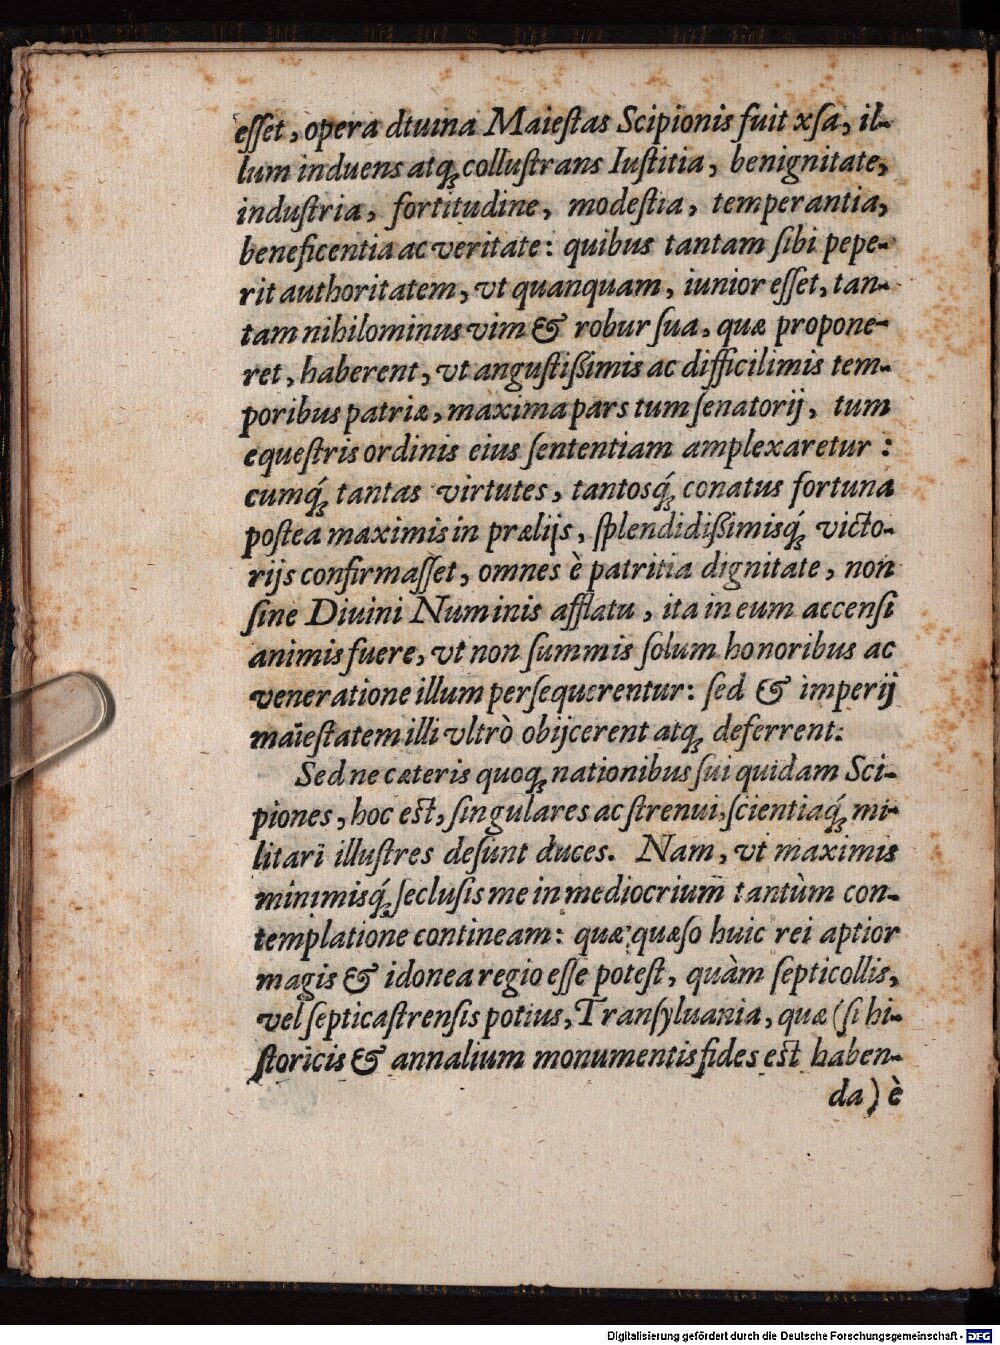 eſſet, opera dtuina Maieſtas Scipionis fuit xſa, il-
lum induens atq; colluſtrans Iuſtitia, benignitate,
induſtria, fortitudine, modeſtia, temperantia,
beneficentia ac veritate: quibus tantam ſibi pepe-
rit authoritatem, vt quanquam, iunior eſſet, tan-
tam nihilominus vim & robur ſua, quæ propone-
ret, haberent, vt anguſtißimis ac difficilimis tem-
poribus patriæ, maxima pars tum ſenatorij, tum
equeſtris ordinis eius ſententiam amplexaretur:
cumq́; tantas virtutes, tantosq́; conatus fortuna
poſtea maximis in prælijs, ſplendidißimisq́; victo-
rijs confirmaſſet, omnes è patritia dignitate, non
ſine Diuini Numinis afflatu, ita in eum accenſi
animis fuere, vt non ſummis ſolum honoribus ac
veneratione illum perſequerentur: ſed & imperij
maieſtatem illi vltrò obijcerent atq; deferrent.
Sed ne cæteris quoq; nationibus ſui quidam Sci-
piones, hoc eſt, ſingulares ac ſtrenui, ſcientiaq́; mi-
litari illuſtres deſunt duces. Nam, vt maximis
minimisq́; ſecluſis me in mediocrium tantùm con-
templatione contineam: quæ quæſo huic rei aptior
magis & idonea regio eſſe poteſt, quàm ſepticollis,
vel ſepticaſtrenſis potius, Tranſyluania, quæ (ſi hi-
ſtoricis & annalium monumentis fides eſt haben-
da) è
Digitalisierung gefördert durch die Deutsche Forschungsgemeinschaft - DFG